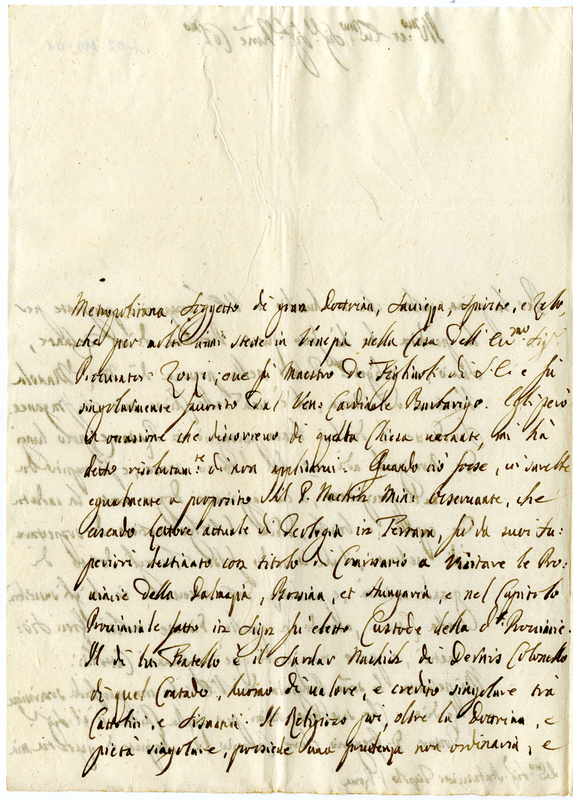 Metropolitana soggetto di gran Dottrina, Sauiezza, Spirito, e Zelo,
che per molti anni stette in Venezia nella Casa dell'
Procurator Zorzi, oue fù Maestro de Figlinoli di S.E. e fù
singolarmente fauorito dal Ven: Cardinale Barbarigo. Egli però
in ocasione che discorreuo di questa Chiesa uacante, mi hà
detto risolutam:te di non applicarui. Quando ciò fosse, ui sarebbe
egualmente a proposito il P. Nachich Min: Osseruante, che
essendo Lettore actuale di Teologia in Ferrara, fù da suoi Su-
periori destinato con titolo di Comissario a Visitare le Pro-
uincie della Dalmazia, Bossina, et Hungaria, e nel Capitolo
Prouinciale fatto in Sign fu eletto Custode della d.a Prouincia.
Il di lui Fratello è il Sardar Nachich di Dernis Colonello
di quel Contado, huomo di ualore, e credito singolare trà
Cattolici, e Il Religioso poi, oltre la Dottrina, e
pietà singolare, possiede una prudenza non ordinaria, e